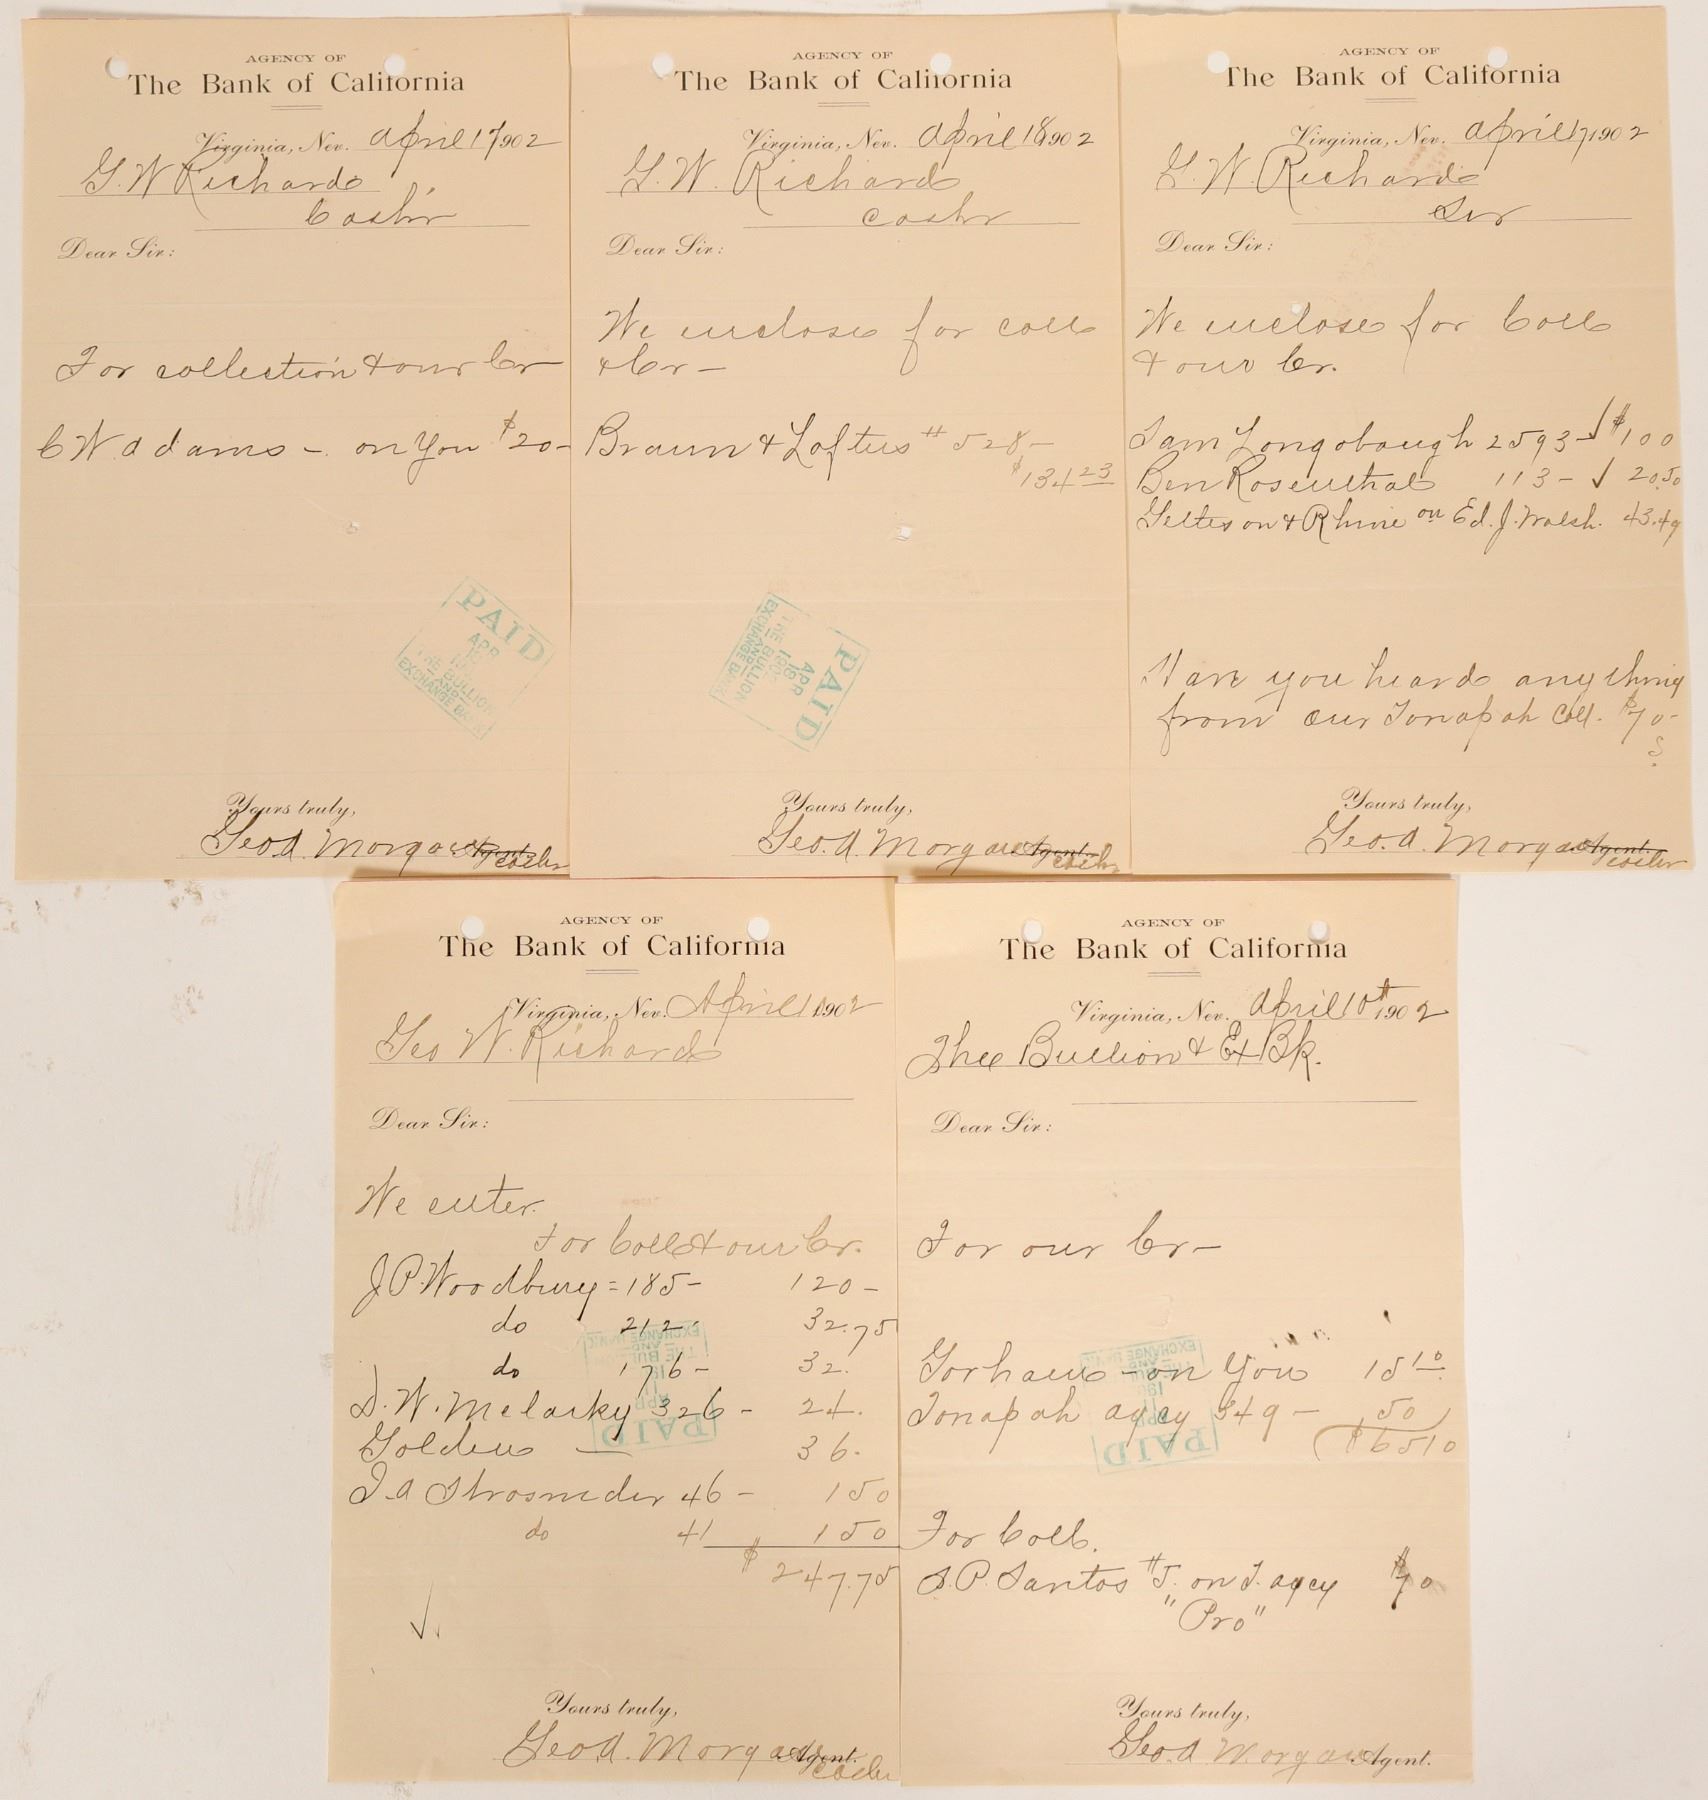 AGENCY OF
The Bank of California
Virginia, Nev. April 17 1902
G. W Richards
Cashr
Dear Sir:
For collection & our Cr
C W. Adams - on you $20-
PAID
APR
THE BULLION
AND
EXCHANGE BANK
Yours truly,
Geo. A. Morgan Agent.
cashr
AGENCY OF
The Bank of California
Virginia, Nev. April 18 1902
G. W. Richards
Cashr
Dear Sir:
We enclose for coll
& Cr -
Braun & Loftus # 528-
$134 23
PAID
APR
18
1902
THE BULLION
AND
EXCHANGE BANK
Yours truly,
Geo. A. Morgan Agent.
cashr
AGENCY OF
The Bank of California
Virginia, Nev. April 17 1902
G. W. Richards
Sir
Dear Sir:
We enclose for Coll
& our Cr.
Sam Longabaugh 2593- ✓ $100
Ben Rosenthal 113- ✓ 20.50
& Rhine on Ed. J. Walsh. 43.49
Have you heard anything
from our Tonapah Coll. $70-
?
Yours truly,
Geo. A. Morgan Agent.
cashr
AGENCY OF
The Bank of California
Virginia, Nev. April 11 1902
Geo W. Richards
Dear Sir:
We enter.
For Coll & our Cr.
J. P. Woodbury = 185- 120-
do 212- 32.75
do 176- 32.
D. W. Melarky 326- 24.
Golden — 36.
J. A Strosnider 46- 1 50
do 41 1 50
$ 247.75
✓
PAID
APR
THE BULLION
AND
EXCHANGE BANK
Yours truly,
Geo. A. Morgan Agent.
cashr
AGENCY OF
The Bank of California
Virginia, Nev. April 10th 1902
The Bullion & Ex Bk.
Dear Sir:
For our Cr-
Gorham - on you 15 10
Tonapah agcy 349- 50
$65 10
PAID
THE BULLION
AND
EXCHANGE BANK
For Coll.
S. P. Santos #5. on T. agcy $70
"Pro"
Yours truly,
Geo. A Morgan Agent.